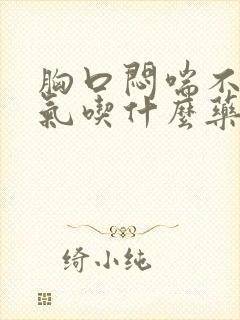 胸口悶喘不
氣喫什麼藥
绮小纯